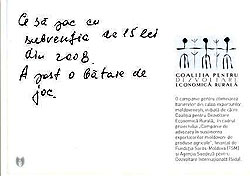 Ce să joc cu
subvenția de 15 lei
din 2008.
A fost o bătaie de
joc.
COALIȚIA PENTRU
DEZVOLTARE
ECONOMICĂ RURALĂ
O campanie pentru eliminarea
barierelor din calea exporturilor
moldovenești, inițiată de către
Coaliția pentru Dezvoltare
Economică Rurală, în cadrul
proiectului „Campanie de
advocacy în susținerea
exportatorilor moldoveni de
produse agricole", finanțat de
Fundația Soros-Moldova
și Agenția Suedeză pentru
Dezvoltare Internațională (Sida).